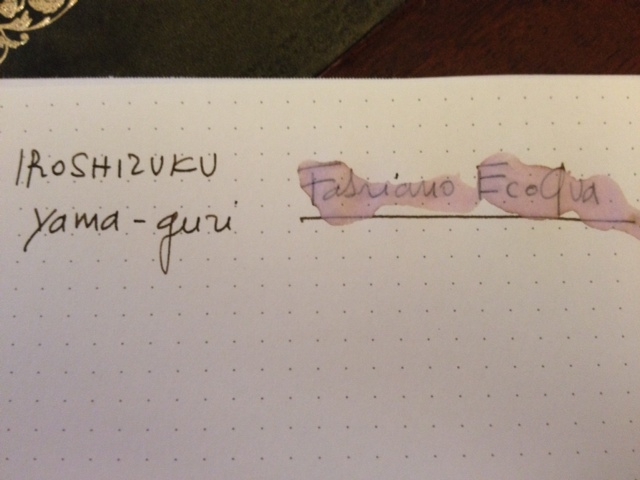 IROSHIZUKU
yama-guri
Fabriano EcoQua